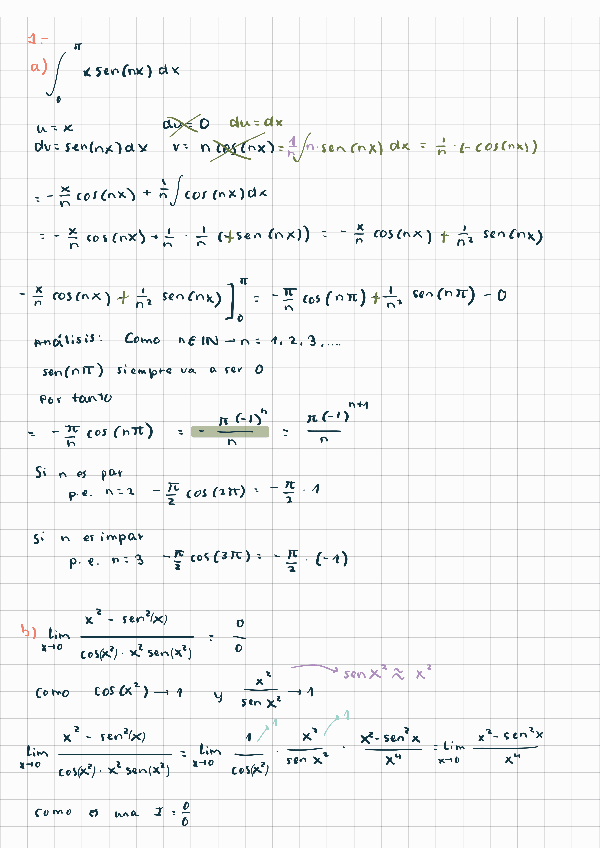 1.-
a) ∫₀^π x sen(nx) dx
u = x du = 0 du = dx
dv = sen(nx) dx v = n cos(nx) = 1/n ∫ n · sen(nx) dx = 1/n · (-cos(nx))
= - x/n cos(nx) + 1/n ∫ cos(nx) dx
= - x/n cos(nx) + 1/n · 1/n (+sen(nx)) = - x/n cos(nx) + 1/n² sen(nx)
- x/n cos(nx) + 1/n² sen(nx) ]₀^π = - π/n cos(nπ) + 1/n² sen(nπ) - 0
Análisis: Como n∈ℕ → n = 1, 2, 3, ....
sen(nπ) siempre va a ser 0
Por tanto
= - π/n cos(nπ) = - π(-1)ⁿ/n = π(-1)ⁿ⁺¹/n
Si n es par
p.e. n=2 - π/2 cos(2π) = - π/2 · 1
Si n es impar
p.e. n=3 - π/2 cos(3π) = - π/2 · (-1)
b) lim x→0 (x² - sen²(x))/(cos(x²) · x² sen(x²)) = 0/0
sen x² ≈ x²
Como cos(x²) → 1 y x²/sen x² → 1
lim x→0 (x² - sen²(x))/(cos(x²) · x² sen(x²)) = lim x→0 1/cos(x²) · x²/sen x² · (x² - sen²x)/x⁴ = lim x→0 (x² - sen²x)/x⁴
1 1
como es una I = 0/0